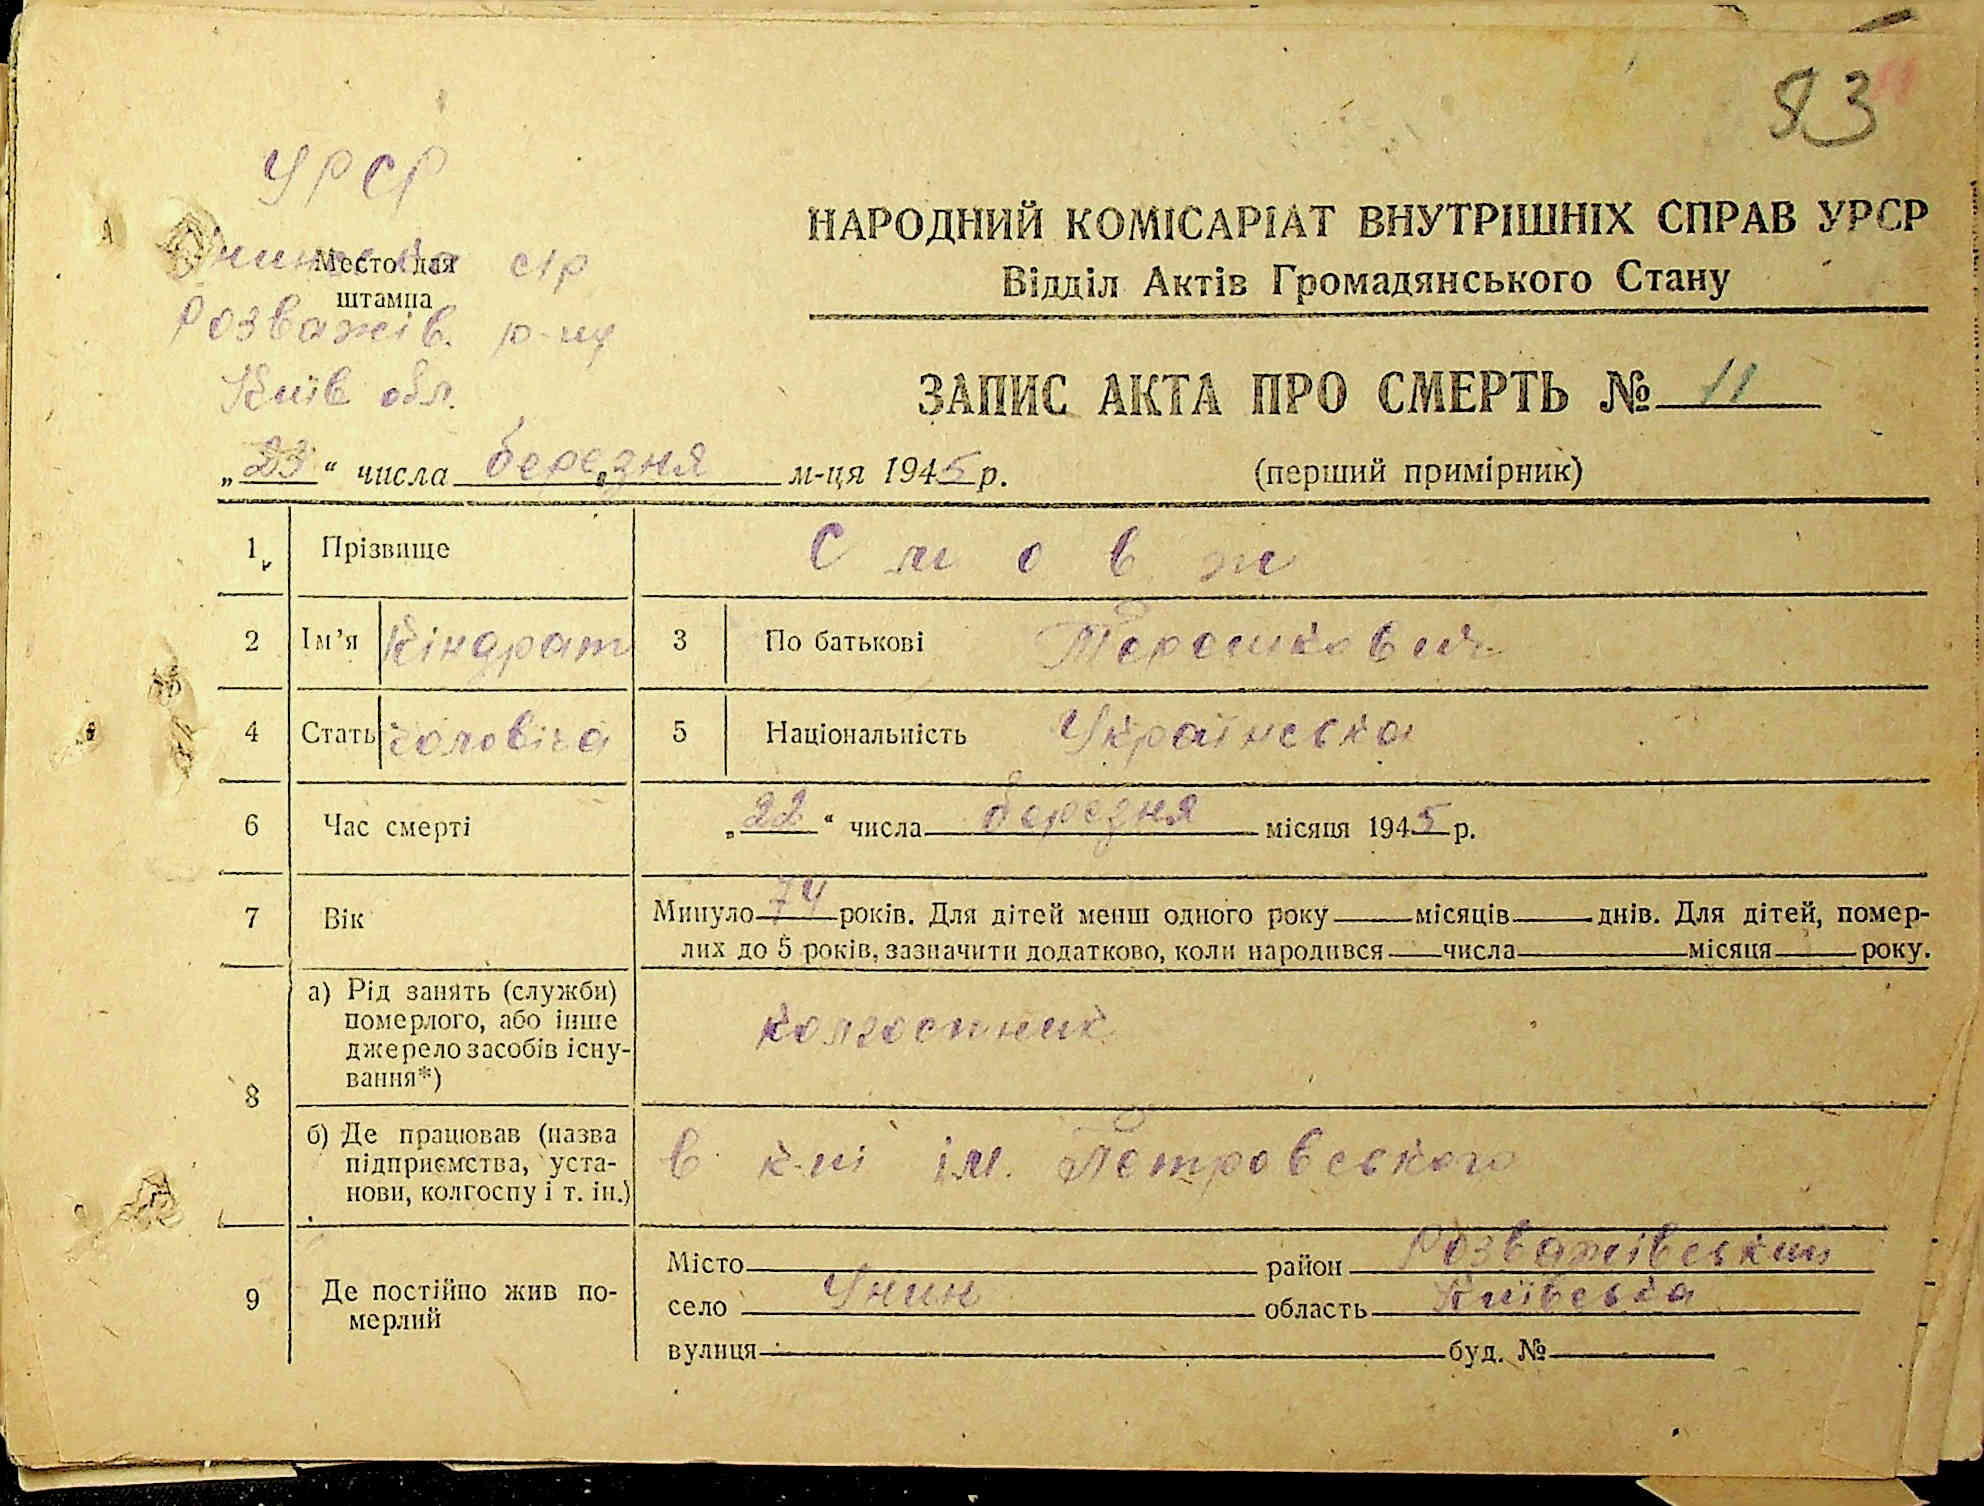 83
УРСР
Унинська с/р
Место для
штампа
Розважів. р-ну
Київ обл.
НАРОДНИЙ КОМІСАРІАТ ВНУТРІШНІХ СПРАВ УРСР
Відділ Актів Громадянського Стану
ЗАПИС АКТА ПРО СМЕРТЬ № 11
„23“ числа березня м-ця 1945 р.
(перший примірник)
1 Прізвище Смовж
2 Ім’я Кіндрат 3 По батькові Терешкович
4 Стать чоловіча 5 Національність Українська
6 Час смерті „22“ числа березня місяця 1945 р.
7 Вік Минуло 74 років. Для дітей менш одного року місяців днів. Для дітей, помер-
лих до 5 років, зазначити додатково, коли народився числа місяця року.
8 а) Рід занять (служби)
померлого, або інше
джерело засобів існу-
вання*)
колгоспник
б) Де працював (назва
підприємства, уста-
нови, колгоспу і т. ін.)
в к-пі ім. Петровського
9 Де постійно жив по-
мерлий
Місто район Розважівський
село Унин область Київська
вулиця буд. №